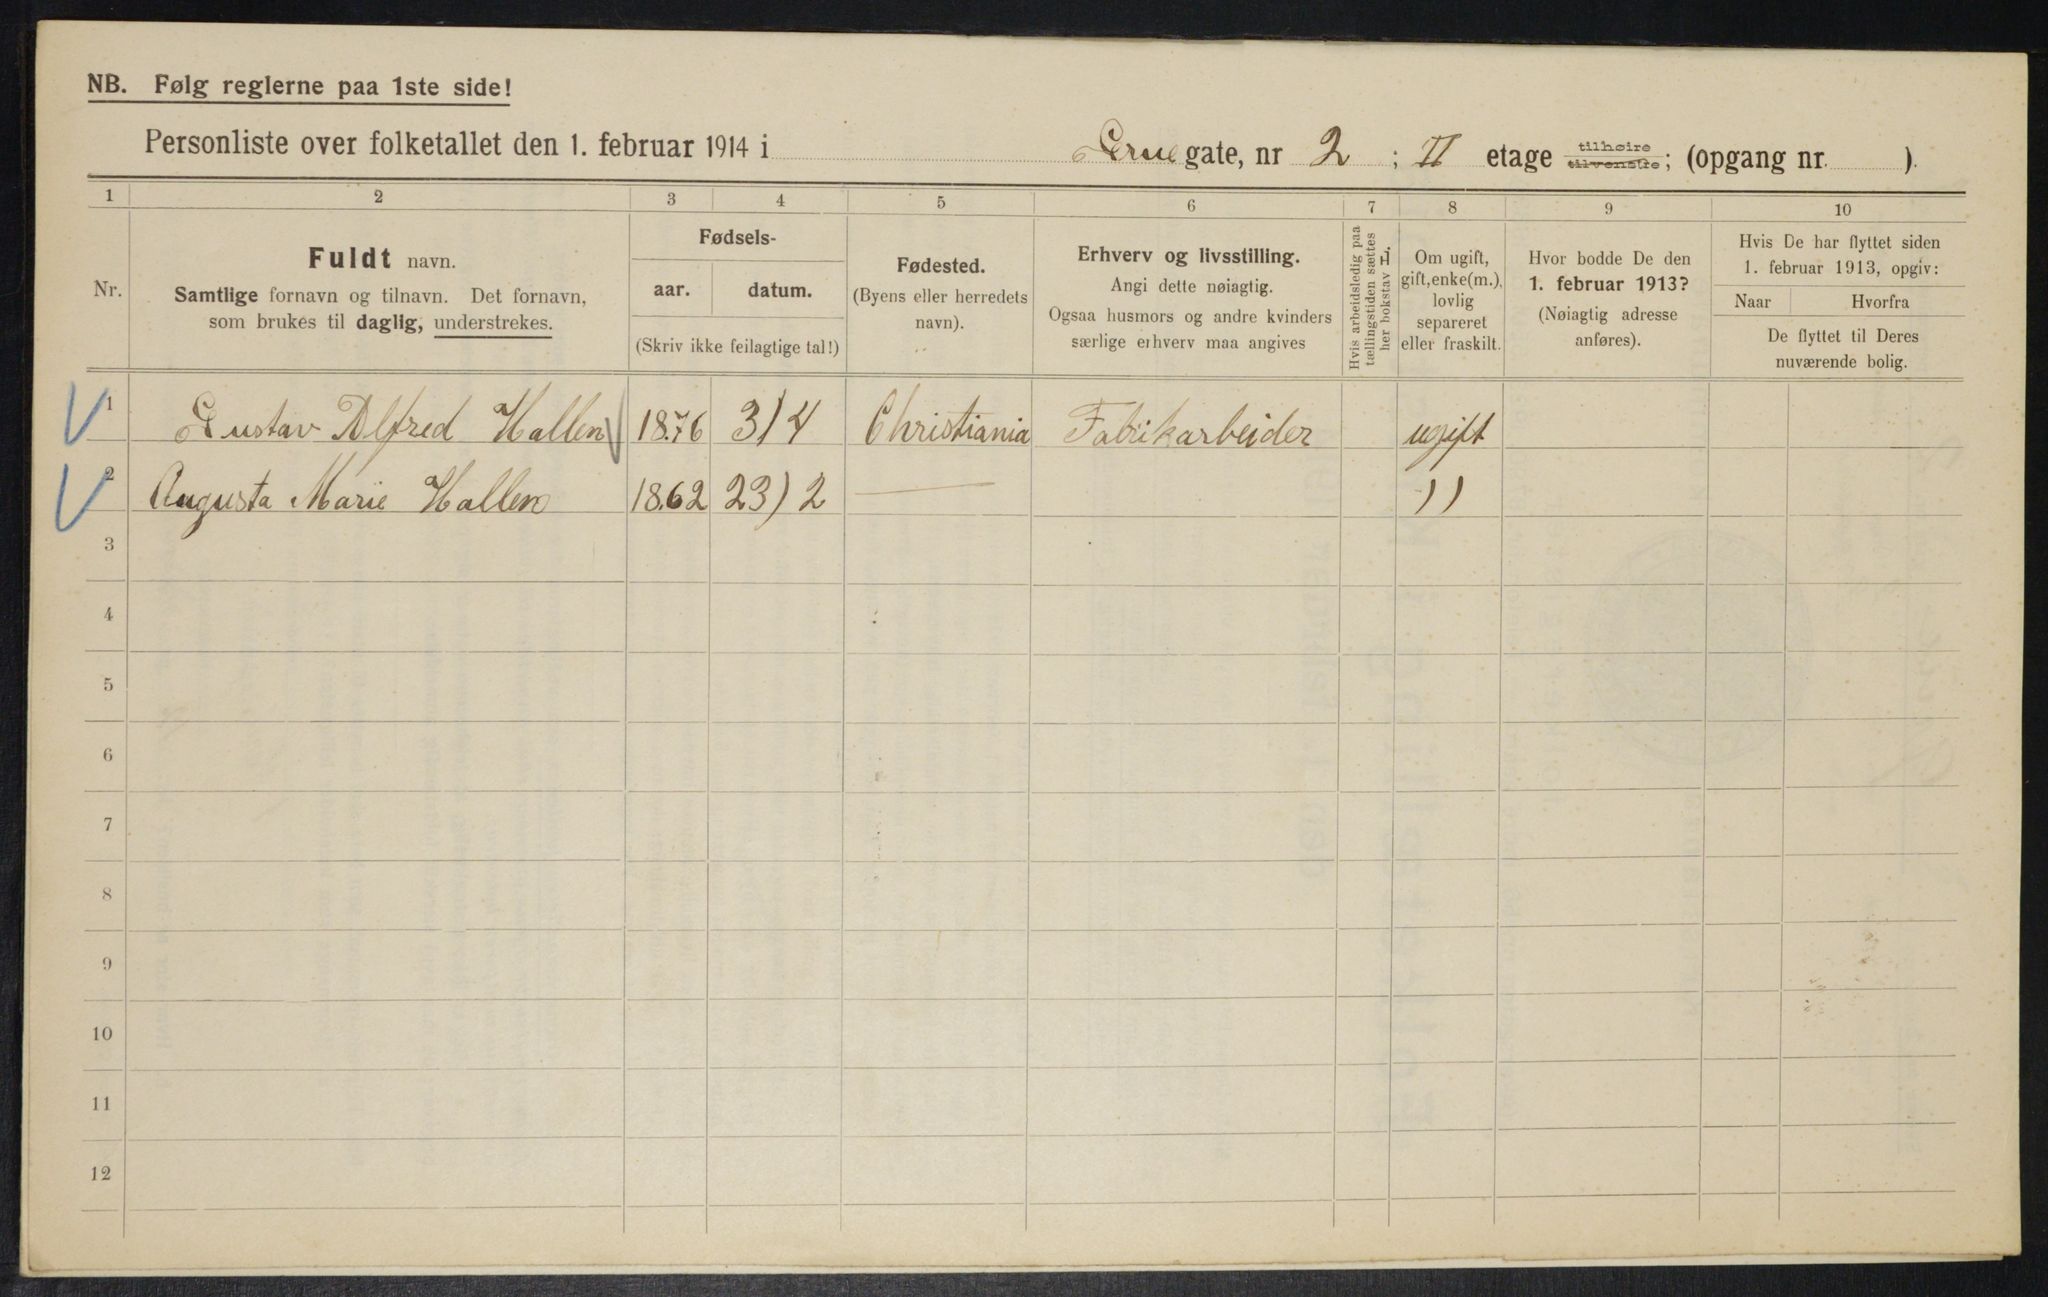 NB. Følg reglerne paa 1ste side!
Personliste over folketallet den 1. februar 1914 i gate, nr 2 ; II etage tilhøire tilvenstre; (opgang nr. ).
1 2 3 4 5 6 7 8 9 10
Nr.
Fuldt navn.
Samtlige fornavn og tilnavn. Det fornavn,
som brukes til daglig, understrekes.
Fødsels-
aar. datum.
(Skriv ikke feilagtige tal!)
Fødested.
(Byens eller herredets
navn).
Erhverv og livsstilling.
Angi dette nøiagtig.
Ogsaa husmors og andre kvinders
særlige erhverv maa angives
Hvis arbeidsledig paa
tællingstiden sættes
her bokstav L.
Om ugift,
gift, enke(m.),
lovlig
separeret
eller fraskilt.
Hvor bodde De den
1. februar 1913?
(Nøiagtig adresse
anføres).
Hvis De har flyttet siden
1. februar 1913, opgiv:
Naar Hvorfra
De flyttet til Deres
nuværende bolig.
1 Gustav Alfred Hallen 1876 3/4 Christiania Fabrikarbeider ugift
2 Augusta Marie Hallen 1862 23/2 — 〃
3
4
5
6
7
8
9
10
11
12